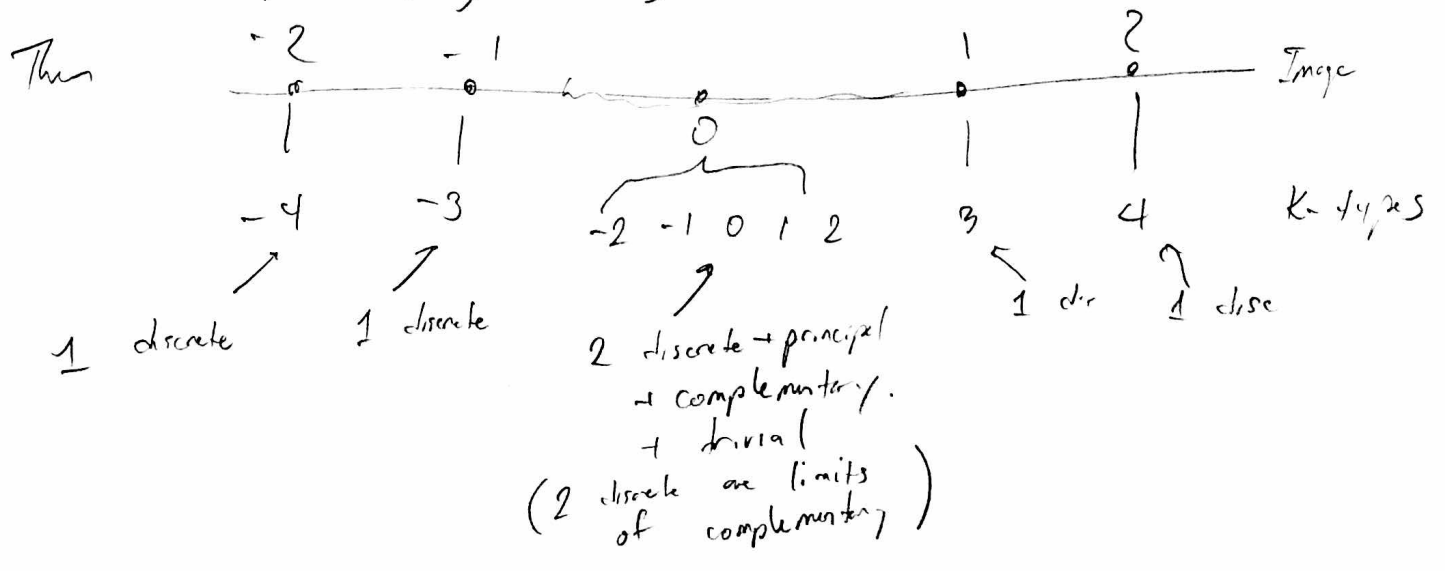 Then -2 -1 0 1 2 Image
-4 -3 -2 -1 0 1 2 3 4 K-types
1 discrete 1 discrete 2 discrete + principal 1 dis 1 disc
+ complementary.
+ trivial
(2 discrete are limits
of complementary)